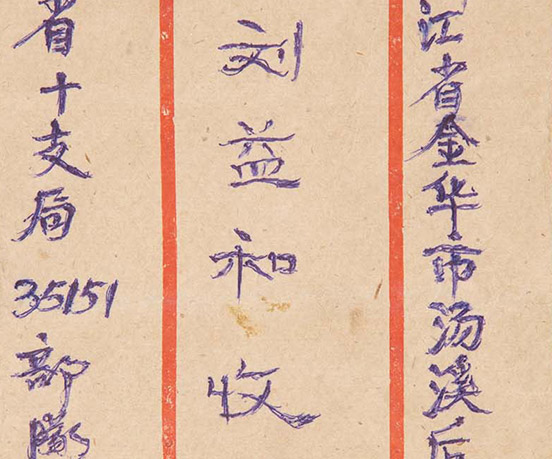 江省金华市汤溪后
刘益和收
省十支局
35151
部队